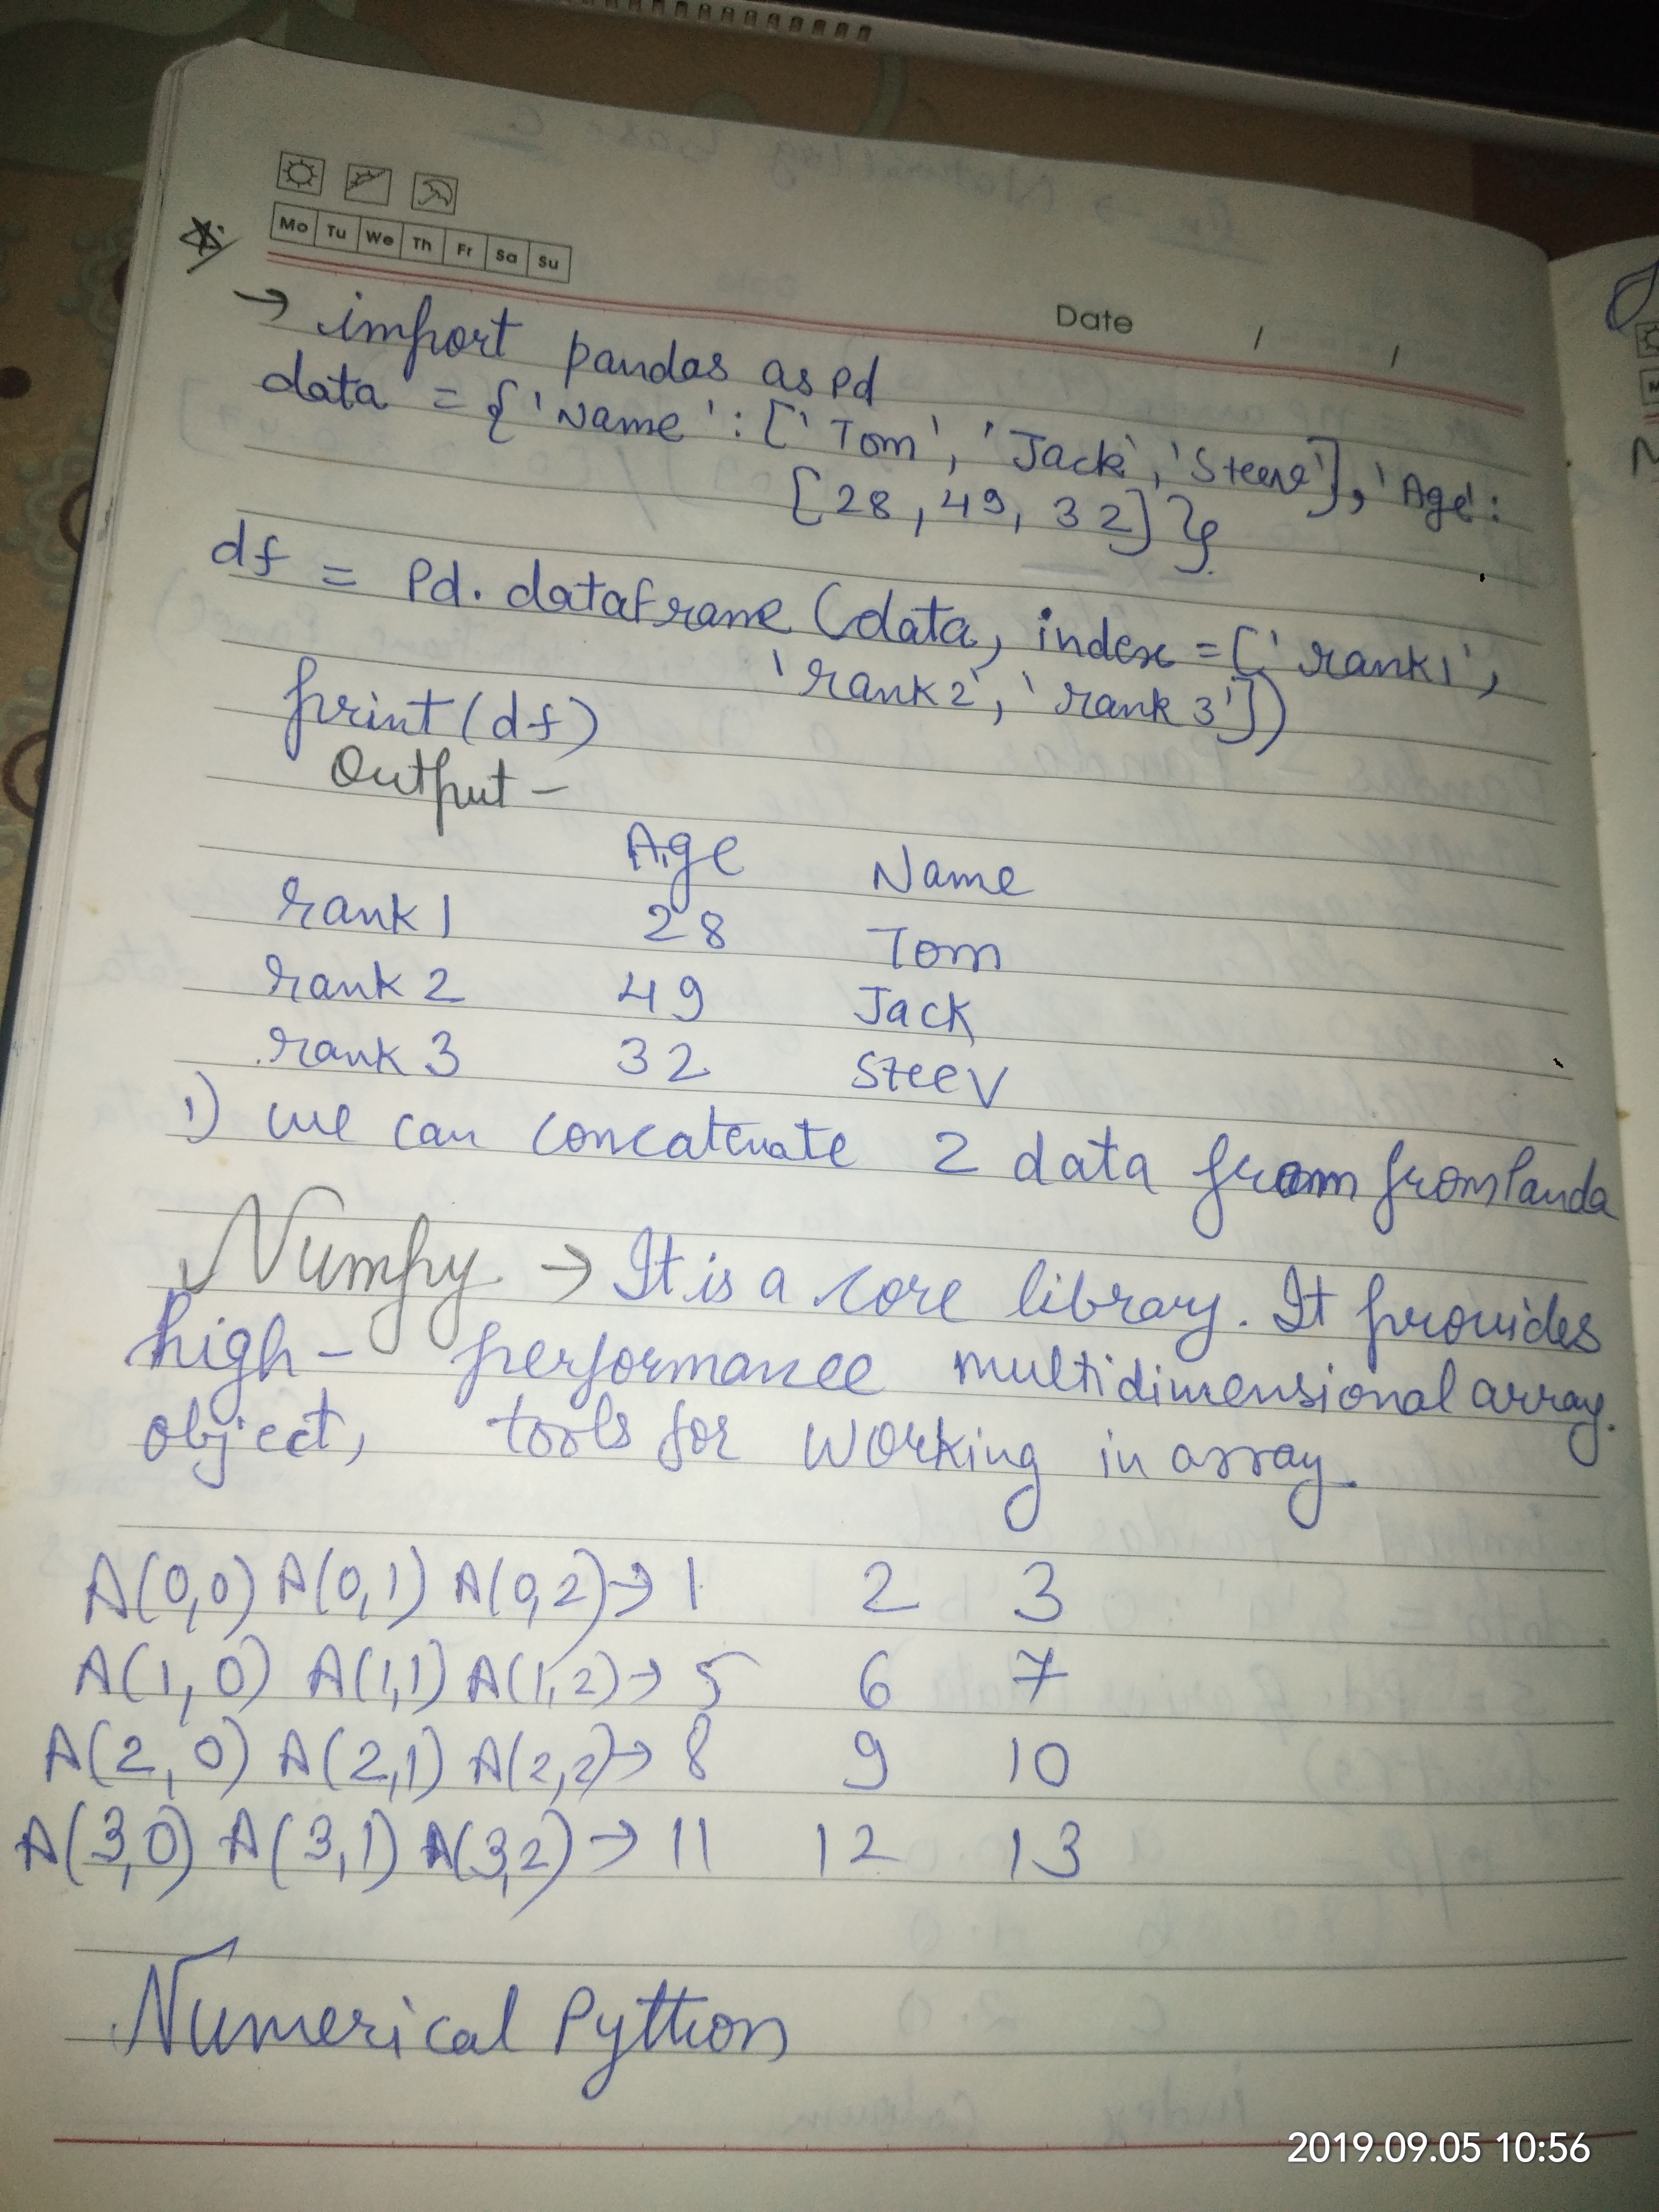 Mo Tu We Th Fr Sa Su
Date / /
→ import pandas as pd
data = {'Name': ['Tom', 'Jack', 'Steeve'], 'Age':
[28, 49, 32]}
df = Pd. dataframe (data, index = ['rank1',
'rank2', 'rank 3'])
print(df)
Output -
Age Name
rank 1 28 Tom
rank 2 49 Jack
rank 3 32 Steev
1) we can concatenate 2 data from from Panda
Numpy → It is a core library. It provides
high - performance multidimensional array.
object, tools for working in array.
A(0,0) A(0,1) A(0,2) → 1 2 3
A(1,0) A(1,1) A(1,2) → 5 6 7
A(2,0) A(2,1) A(2,2) → 8 9 10
A(3,0) A(3,1) A(3,2) → 11 12 13
Numerical Python
2019.09.05 10:56